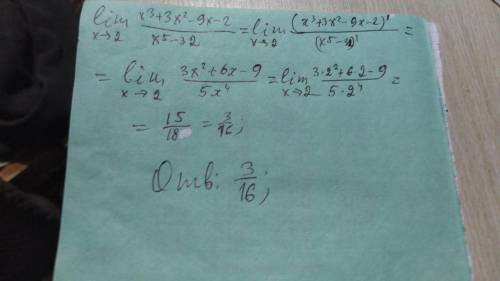 lim x→2 (x³+3x²-9x-2)/(x⁵-32) = lim x→2 (x³+3x²-9x-2)'/(x⁵-32)' =
= lim x→2 (3x²+6x-9)/(5x⁴) = lim x→2 (3·2²+6·2-9)/(5·2⁴) =
= 15/18 = 3/16;
Отв: 3/16;